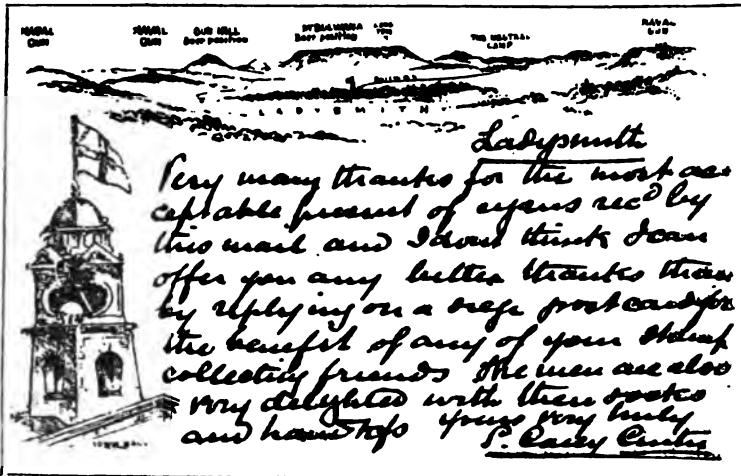 NAVAL GUN NAVAL GUN GUN HILL Boer position MT BULWANA Boer position LONG TOM THE NEUTRAL CAMP NAVAL GUN
LADYSMITH
Ladysmith
Very many thanks for the most ac-
ceptable present of cigars recd by
this mail and I dont think I can
offer you any better thanks than
by replying on a siege post card for
the benefit of any of your stamp
collecting friends The men are also
very delighted with their socks
and Yours very truly
TOWN HALL